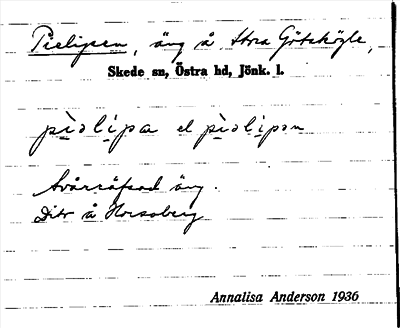 Pielipen, äng å Stora Götestögle,
Skede sn, Östra hd, Jönk. l.
pìəlìpa el pìəlìpən
Svårräfsad äng.
Dito å Horsaberg
Annalisa Anderson 1936